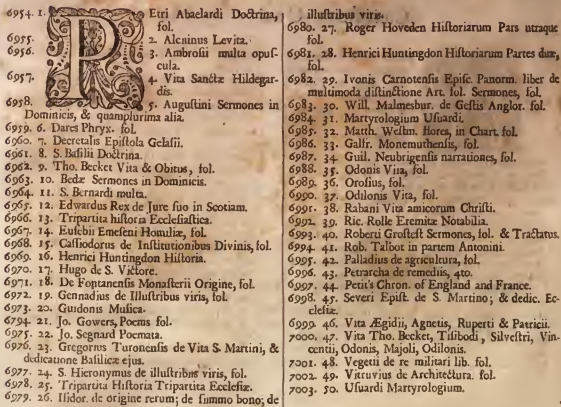 6954. 1. PEtri Abaelardi Doctrina, fol.
6955. 2. Alcninus Levita.
6956. 3. Ambrosii multa opuscula.
6957. 4. Vita Sanctæ Hildegardis.
6958. 5. Augustini Sermones in
Dominicis, & quamplurima alia.
6959. 6. Dares Phryx. fol.
6960. 7. Decretalis Epistola Gelasii.
6961. 8. S. Basilii Doctrina.
6962. 9. Tho. Becket Vita & Obitus, fol.
6963. 10. Bedæ Sermones in Dominicis.
6964. 11. S. Bernardi multa.
6965. 12. Edwardus Rex de Jure suo in Scotiam.
6966. 13. Tripartita historia Ecclesiastica.
6967. 14. Eusebii Emeseni Homiliæ, fol.
6968. 15. Cassiodorus de Institutionibus Divinis, fol.
6969. 16. Henrici Huntingdon Historia.
6970. 17. Hugo de S. Victore.
6971. 18. De Fontanensis Monasterii Origine, fol.
6972. 19. Gennadius de Illustribus viris, fol.
6973. 20. Guidonis Musica.
6794. 21. Jo. Gowers, Poems fol.
6975. 22. Jo. Segnard Poemata.
6976. 23. Gregorus Turonensis de Vita S. Martini, &
dedicatione Basilicæ ejus.
6977. 24. S. Hieronymus de illustribus viris, fol.
6978. 25. Tripartita Historia Tripartita Ecclesiæ.
6979. 26. Isidor. de origine rerum; de summo bono; de
illustribus viris.
6980. 27. Roger Hoveden Historiarum Pars utraque
fol.
6981. 28. Henrici Huntingdon Historiarum Partes duæ,
fol.
6982. 29. Ivonis Carnotensis Episc. Panorm. liber de
multimoda distinctione Art. fol. Sermones, fol.
6983. 30. Will. Malmesbur. de Gestis Anglor. fol.
6984. 31. Martyrologium Usuardi.
6985. 32. Matth. Westm. flores, in Chart. fol.
6986. 33. Galfr. Monemuthensis, fol.
6987. 34. Guil. Neubrigensis narrationes, fol.
6988. 35. Odonis Vita, fol.
6989. 36. Orosius, fol.
6990. 37. Odilonis Vita, fol.
6991. 38. Rabani Vita amicorum Christi.
6992. 39. Ric. Rolle Eremitæ Notabilia.
6993. 40. Roberti Grostest Sermones, fol. & Tractatus.
6994. 41. Rob. Talbot in partem Antonini.
6995. 42. Palladius de agricultura, fol.
6996. 43. Petrarcha de remediis, 4to.
6997. 44. Petit's Chron. of England and France.
6998. 45. Severi Epist. de S. Martino; & dedic. Ecclesiæ.
6999. 46. Vita Ægidii, Agnetis, Ruperti & Patricii.
7000. 47. Vita Tho. Becket, Tisibodi, Silvestri, Vincentii, Odonis, Majoli, Odilonis.
7001. 48. Vegetii de re militari lib. fol.
7002. 49. Vitruvius de Architectura. fol.
7003. 50. Usuardi Martyrologium.